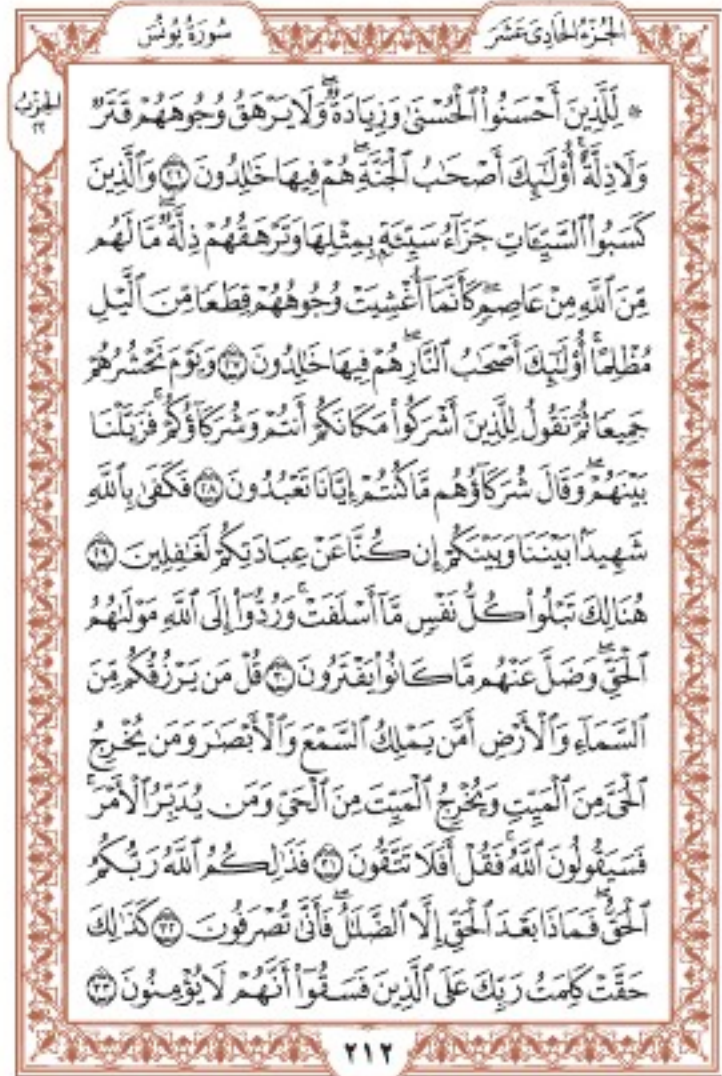 الجُزْءُ الحَادِى عَشَرَ
سُورَةُ يُونُسَ
الحِزْبُ
٢٢
* لِّلَّذِينَ أَحْسَنُوا۟ ٱلْحُسْنَىٰ وَزِيَادَةٌۖ وَلَا يَرْهَقُ وُجُوهَهُمْ قَتَرٌ
وَلَا ذِلَّةٌۚ أُو۟لَـٰٓئِكَ أَصْحَـٰبُ ٱلْجَنَّةِۖ هُمْ فِيهَا خَـٰلِدُونَ ٢٦ وَٱلَّذِينَ
كَسَبُوا۟ ٱلسَّيِّـَٔاتِ جَزَآءُ سَيِّئَةٍۭ بِمِثْلِهَا وَتَرْهَقُهُمْ ذِلَّةٌۖ مَّا لَهُم
مِّنَ ٱللَّهِ مِنْ عَاصِمٍۖ كَأَنَّمَآ أُغْشِيَتْ وُجُوهُهُمْ قِطَعًا مِّنَ ٱلَّيْلِ
مُظْلِمًاۚ أُو۟لَـٰٓئِكَ أَصْحَـٰبُ ٱلنَّارِۖ هُمْ فِيهَا خَـٰلِدُونَ ٢٧ وَيَوْمَ نَحْشُرُهُمْ
جَمِيعًا ثُمَّ نَقُولُ لِلَّذِينَ أَشْرَكُوا۟ مَكَانَكُمْ أَنتُمْ وَشُرَكَآؤُكُمْۚ فَزَيَّلْنَا
بَيْنَهُمْۖ وَقَالَ شُرَكَآؤُهُم مَّا كُنتُمْ إِيَّانَا تَعْبُدُونَ ٢٨ فَكَفَىٰ بِٱللَّهِ
شَهِيدًۢا بَيْنَنَا وَبَيْنَكُمْ إِن كُنَّا عَنْ عِبَادَتِكُمْ لَغَـٰفِلِينَ ٢٩
هُنَالِكَ تَبْلُوا۟ كُلُّ نَفْسٍ مَّآ أَسْلَفَتْۚ وَرُدُّوٓا۟ إِلَى ٱللَّهِ مَوْلَىٰهُمُ
ٱلْحَقِّۖ وَضَلَّ عَنْهُم مَّا كَانُوا۟ يَفْتَرُونَ ٣٠ قُلْ مَن يَرْزُقُكُم مِّنَ
ٱلسَّمَآءِ وَٱلْأَرْضِ أَمَّن يَمْلِكُ ٱلسَّمْعَ وَٱلْأَبْصَـٰرَ وَمَن يُخْرِجُ
ٱلْحَىَّ مِنَ ٱلْمَيِّتِ وَيُخْرِجُ ٱلْمَيِّتَ مِنَ ٱلْحَىِّ وَمَن يُدَبِّرُ ٱلْأَمْرَۚ
فَسَيَقُولُونَ ٱللَّهُۚ فَقُلْ أَفَلَا تَتَّقُونَ ٣١ فَذَٰلِكُمُ ٱللَّهُ رَبُّكُمُ
ٱلْحَقُّۖ فَمَاذَا بَعْدَ ٱلْحَقِّ إِلَّا ٱلضَّلَـٰلُۖ فَأَنَّىٰ تُصْرَفُونَ ٣٢ كَذَٰلِكَ
حَقَّتْ كَلِمَتُ رَبِّكَ عَلَى ٱلَّذِينَ فَسَقُوٓا۟ أَنَّهُمْ لَا يُؤْمِنُونَ ٣٣
٢١٢